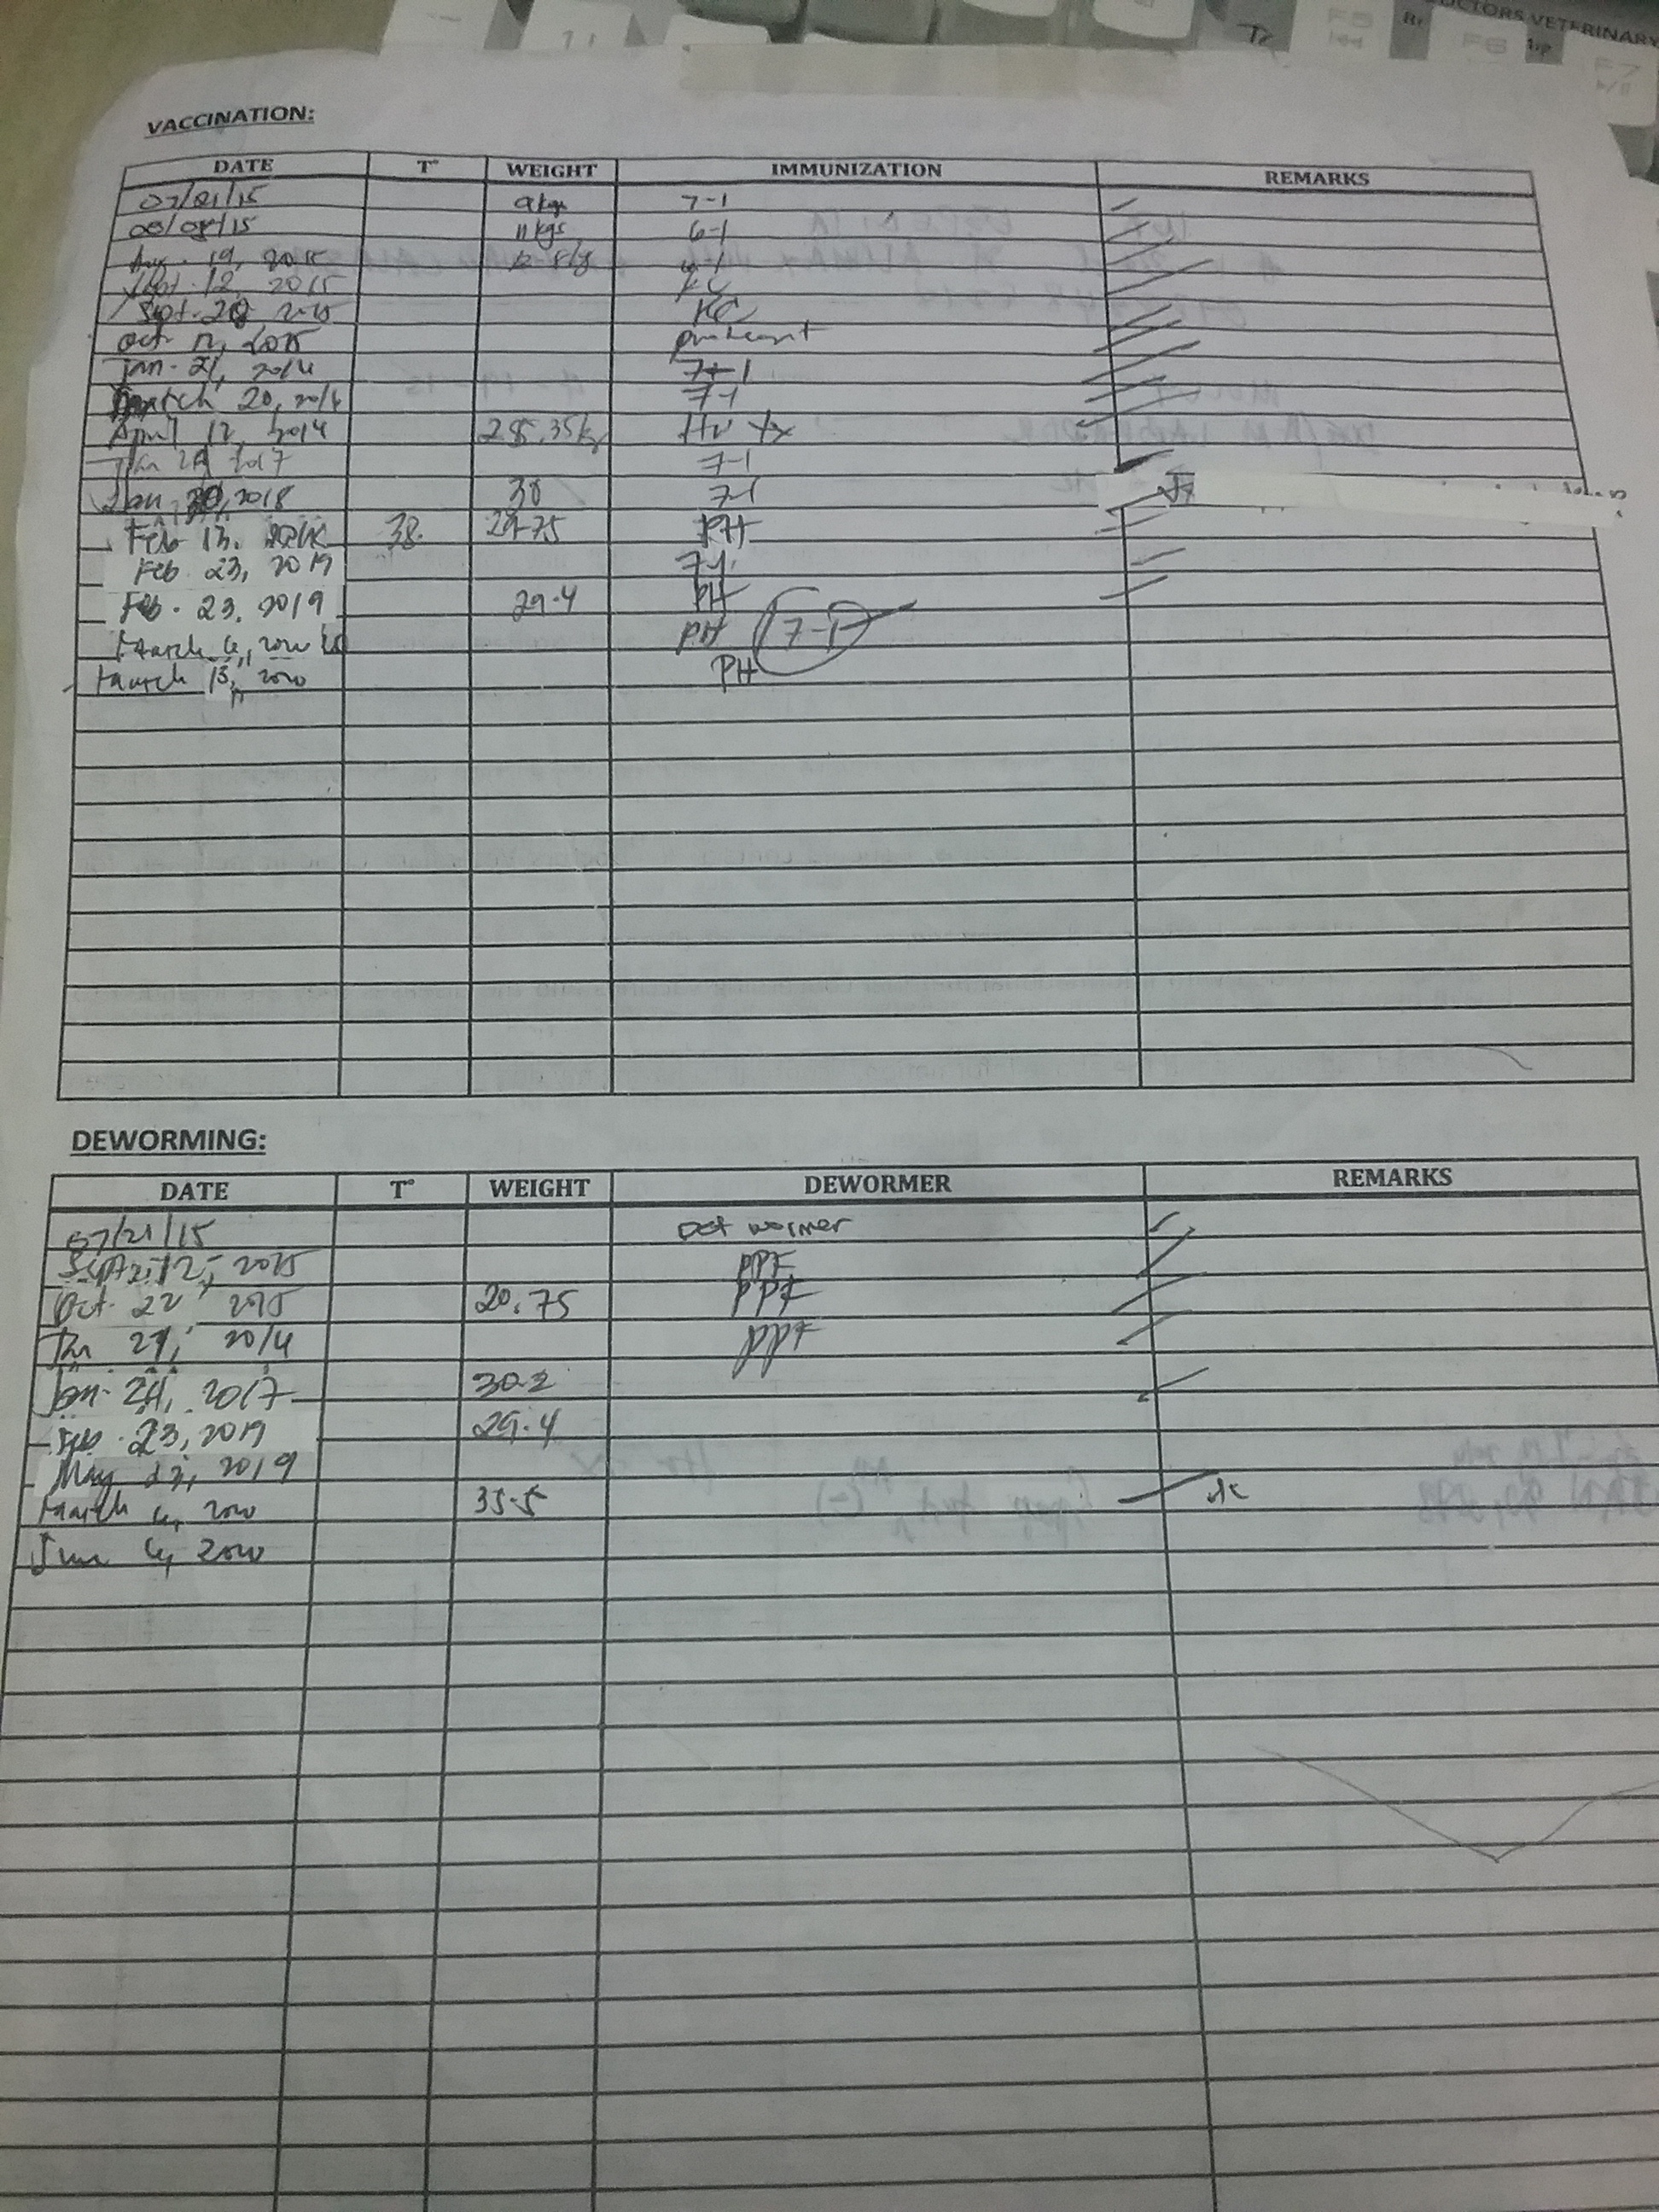 DOCTORS VETERINARY
F5
F6
F7
VACCINATION:
DATE T° WEIGHT IMMUNIZATION REMARKS
07/21/15 9kgs 7-1
08/08/15 11kgs 6-1
Aug. 19, 2015
Sept. 12, 2015 KC
Sept. 28 2015 KC
Oct 12, 2015
Jan. 21, 2016 7-1
March 20, 2016 7-1
April 12, 2016 285.35kg
Jan 24 2017 7-1
Jan 30, 2018 30 7-1
Feb 13, 38. 29.75 PH
Feb. 23, 2019 7-1
Feb. 23, 2019 29.4 PH
March 6, 2020 PH 7-1
March 13, 2020 PH
DEWORMING:
DATE T° WEIGHT DEWORMER REMARKS
07/21/15 wormer
Sept. 12, 2015 PPF
Oct. 22, 2015 20.75 PPF
Jan 21, 2016 PPF
Jan. 24, 2017 30.2
Feb. 23, 2019 29.4
May 23, 2019
March 6, 2020 35.5
June 6, 2020